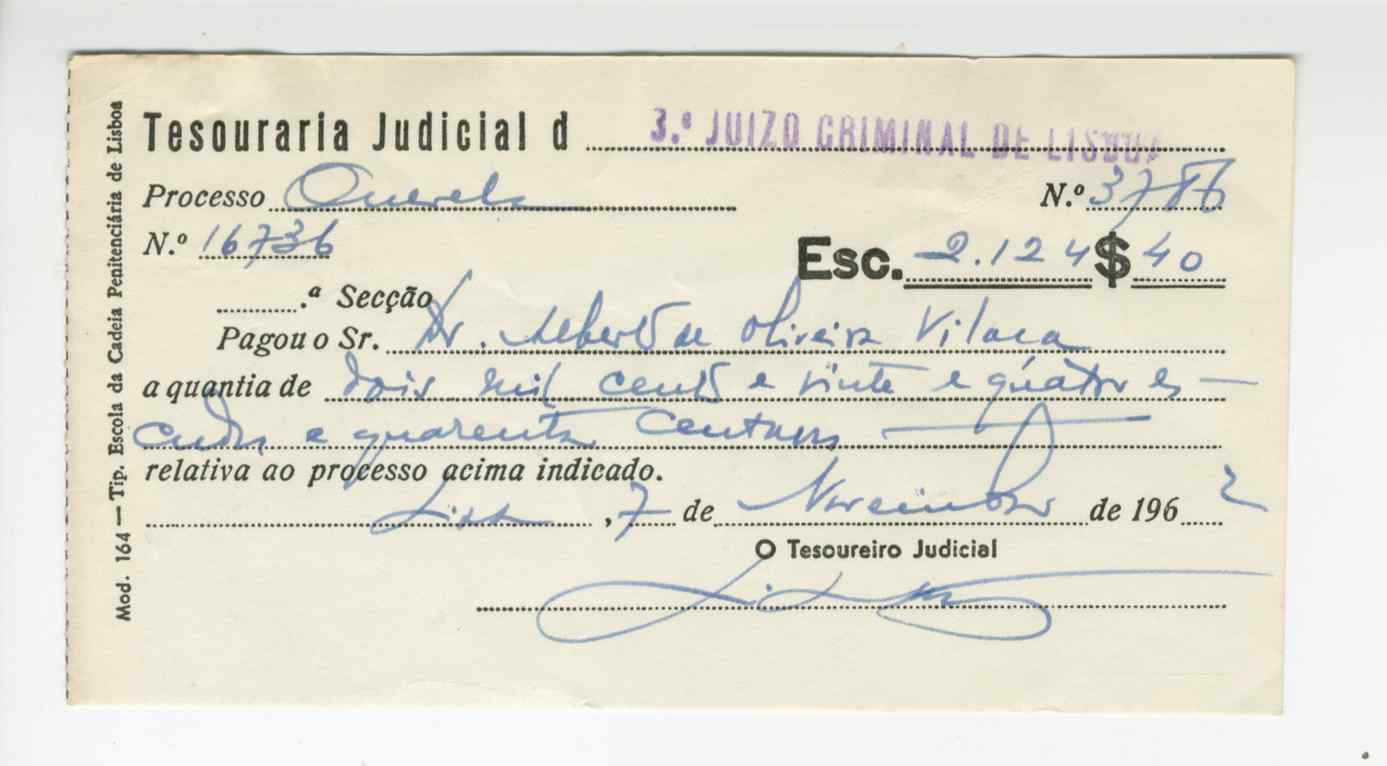 Tesouraria Judicial d 3.º JUIZO CRIMINAL DE LISBOA
Processo Querela N.º 3786
N.º 16736 Esc. 2.124$40
.ª Secção
Pagou o Sr. Dr. Alberto de Oliveira Vilaça
a quantia de dois mil cento e vinte e quatro es-
cudos e quarenta centavos
relativa ao processo acima indicado.
Lisboa, 7 de Novembro de 1962
O Tesoureiro Judicial
Mod. 164 — Tip. Escola da Cadeia Penitenciária de Lisboa